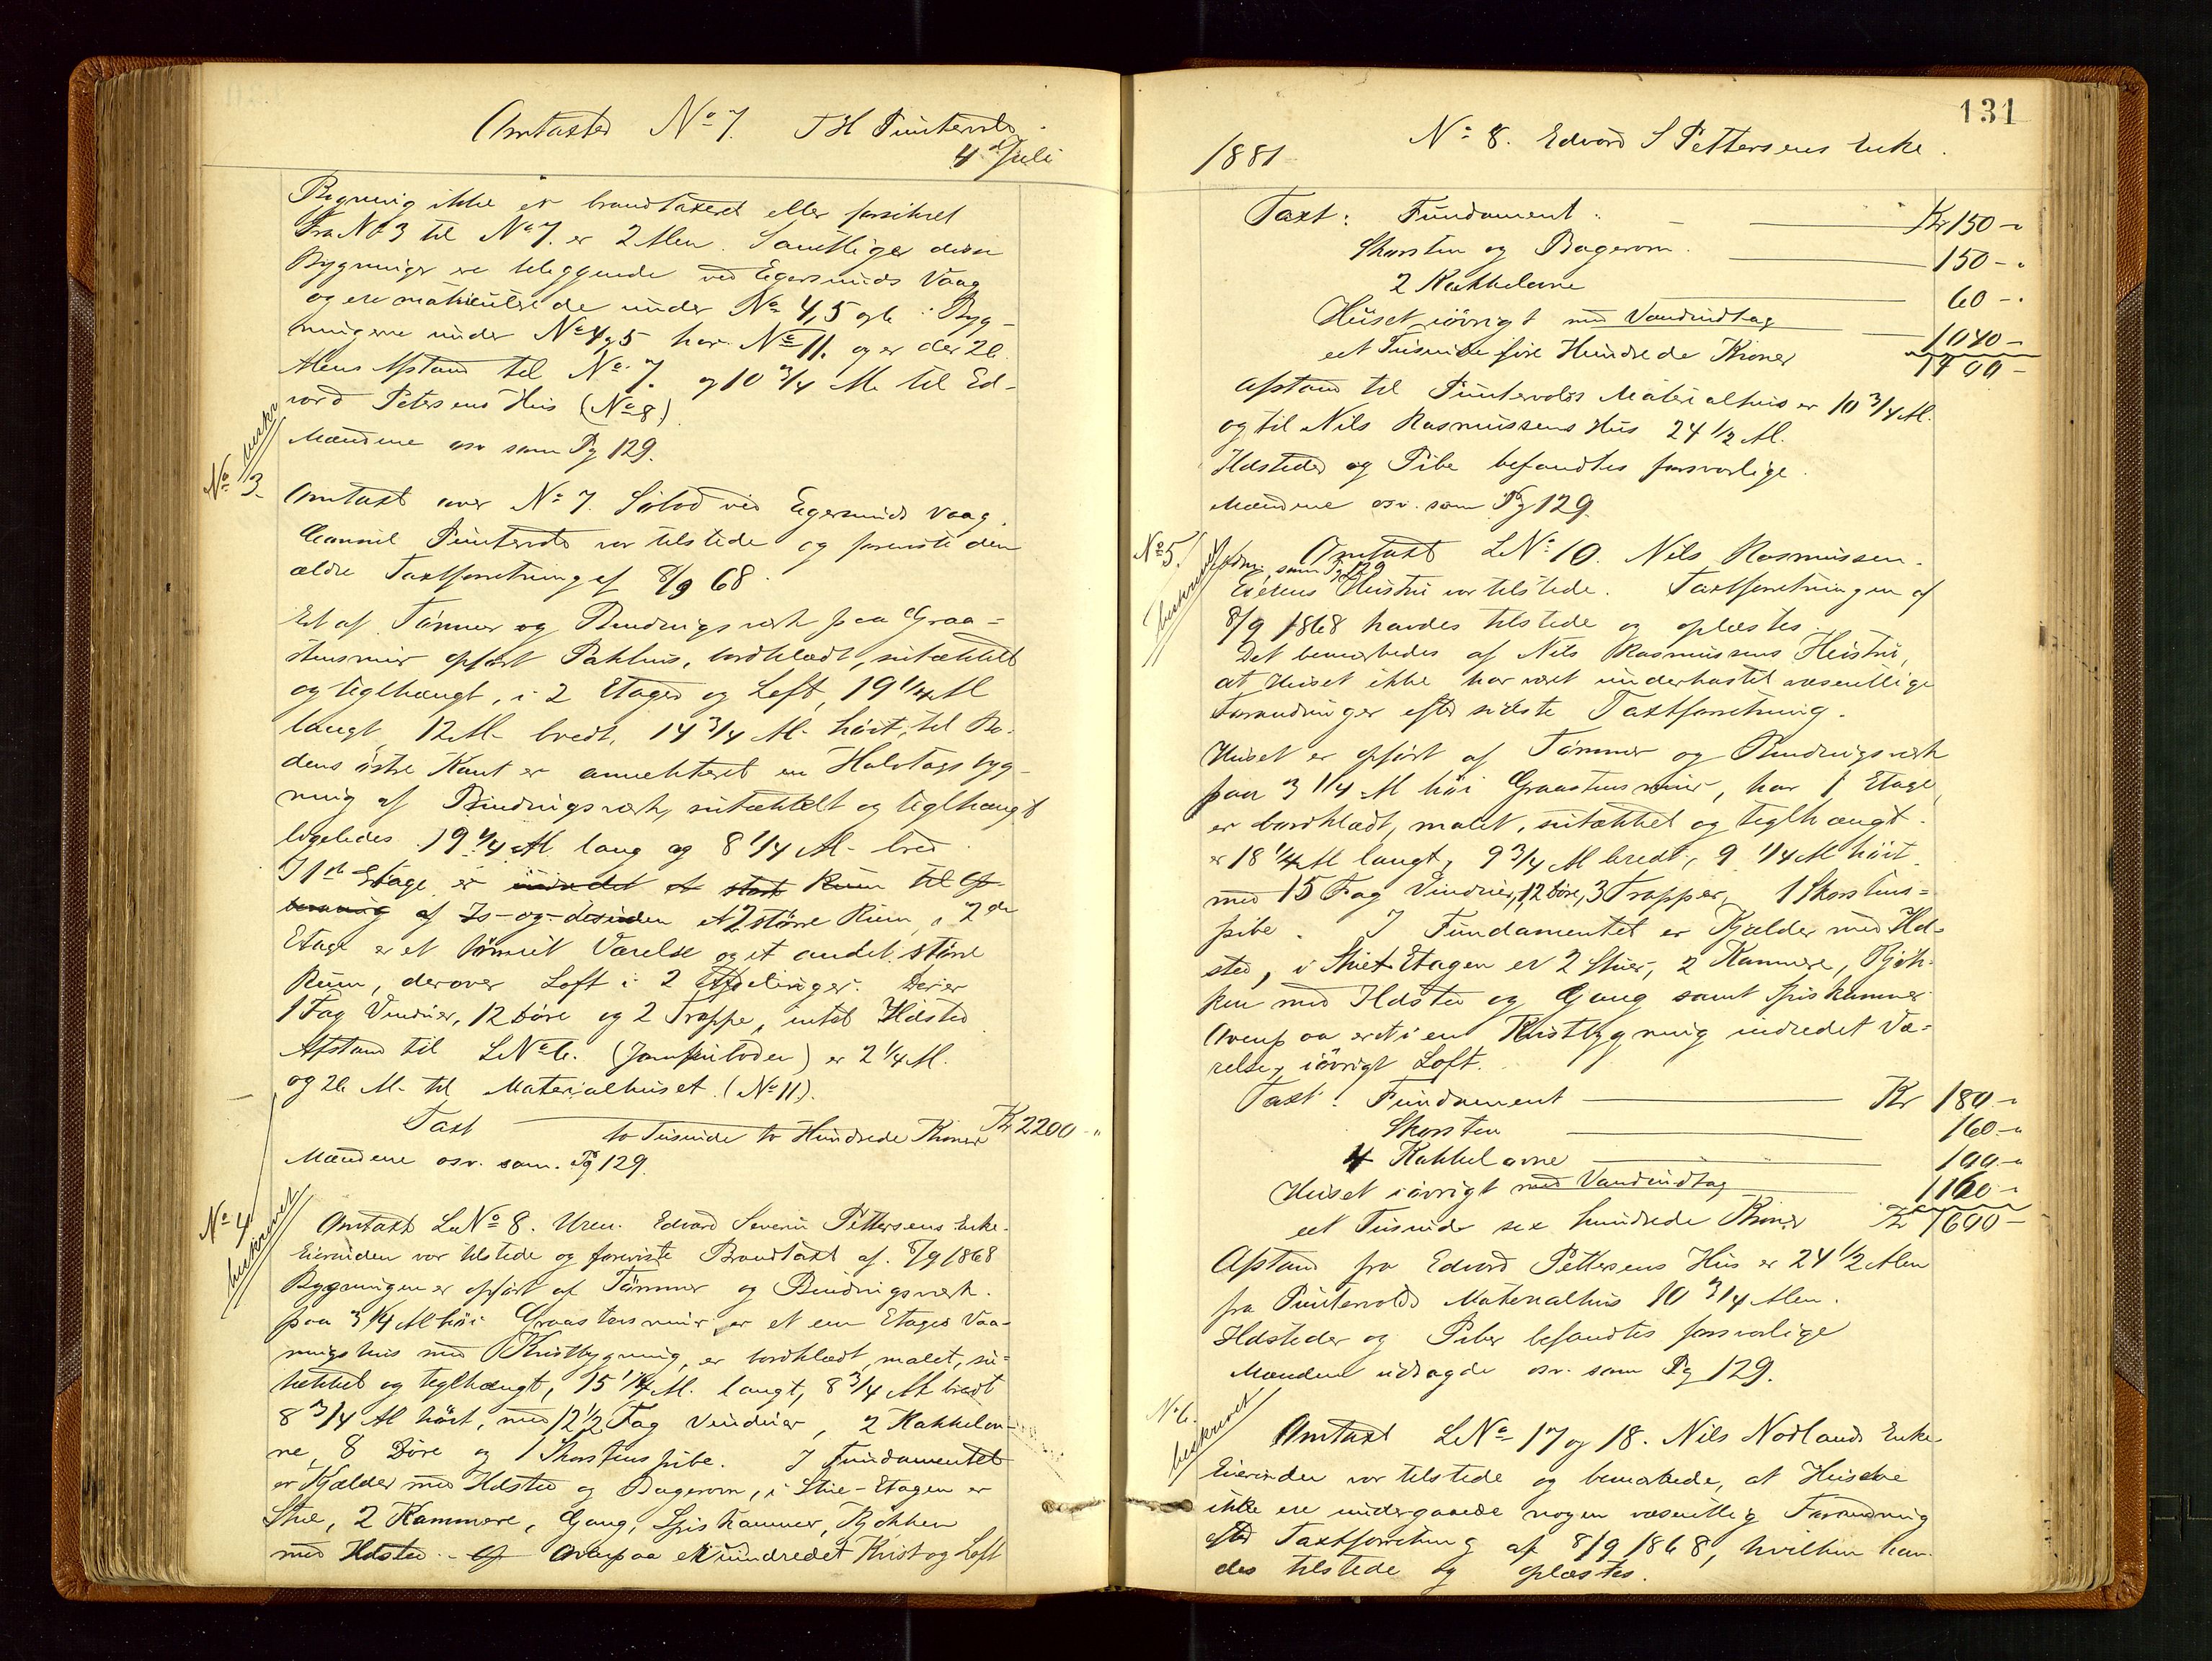 Omtaxted No 7. T H Puntervolds
4de Juli
Bygning ikke er brandtaxeret eller forsikret
Fra No 3 til No 7. er 2 Alen. Samtlige disse
Bygninger ere beliggende ved Egersunds Vaag
og ere matriculerede under No 4, 5 og 6. Byg-
ningerne under No 4 og 5 har No 11. og er der 26
Alens Afstand til No 7. og 10 3/4 Al. til Ed-
vard Petersens Hus (No 8)
Mændene osv som Pg 129.
No 3. beskr
Omtaxt over No 7. Søbod ved Egersunds Vaag.
Consul Puntervold var tilstede og foreviste den
ældre Taxtforretning af 8/9 68.
Et af Tømmer og Bindingsværk paa Graa-
stensmur opført Pakhus, bordklædt, sutækket
og teglhængt, i 2 Etager og Loft, 19 1/4 Al
langt 12 Al. bredt, 14 3/4 Al. høit, til Bo-
dens østre Kant er annekteret en Halvtagsbyg-
ning af Bindingsværk, sutækkelt og teglhængt
ligeledes 19 1/4 Al. lang og 8 1/4 Al. bred
I 1ste Etage er indredet et stort Rum til Op-
bevaring af Is- og desuden et 2 større Rum, i 2den
Etage er et tømret Værelse og et andet større
Rum, derover Loft i 2 Afdelinger. Der er
1 Fag Vinduer, 12 Døre og 2 Trappe, intet Ildsted
Afstand til LNo 6. er 2 1/4 Al.
og 26 Al. til Materialhuset (No 11).
Taxt to Tusinde to Hundrede Kroner Kr 2200 - "
Mændene osv. som Pg 129.
No 4 beskrevet
Omtaxt LNo 8. Edvard Severin Pettersens Enke.
Eierinden var tilstede og foreviste Brandtaxt af 8/9 1868
Bygningen er opført af Tømmer og Bindingsværk.
paa 3 1/4 Al høi Graastensmur, er et een Etages Vaa-
ningshus med Kvistbygning, er bordklædt, malet, su-
tækket og teglhængt, 15 1/4 Al. langt, 8 3/4 Al bredt
8 3/4 Al høit, med 12 1/2 Fag Vinduer, 2 Kakkelov-
ne, 8 Døre og 1 Skorstenspibe. I Fundamentet
er Kjælder med Ildsted og Bagerovn, i Stue-Etagen er
Stue, 2 Kammere, Gang, Spiskammer, Kjøkken
med Ildsted. Ovenpaa er uindredet Kvist og Loft
131
1881 No 8. Edvard S Pettersens Enke.
Taxt: Fundament Kr 150 - "
Skorsten og Bagerovn 150 - "
2 Kakkelovne 60 - "
Huset iøvrigt med Vandindtag 1040 -
eet Tusinde fire Hundrede Kroner 1400 -
Afstand til Puntervolds Materialhus er 10 3/4 Al.
og til Nils Rasmussens Hus 24 1/2 Al.
Ildsteder og Pibe befandtes forsvarlige.
Mændene osv. som Pg 129.
No 5. beskrevet
Omtaxt LNo 10. Nils Rasmussen.
som Pg 129
Eierens Hustru var tilstede. Taxtforretningen af
8/9 1868 havdes tilstede og oplæstes.
Det bemærkedes af Nils Rasmussens Hustru,
at Huset ikke har været underkastet væsentlige
Forandringer efter sidste Taxtforretning.
Huset er opført af Tømmer og Bindingsværk
paa 3 1/4 Al høi Graastensmur, har 1 Etage,
er bordklædt, malet, sutækket og teglhængt.
er 18 1/4 Al langt, 9 3/4 Al bredt, 9 1/4 Al høit
med 15 Fag Vinduer, 12 Døre, 3 Trapper, 1 Skorstens-
pibe. I Fundamentet er Kjælder med Ild-
sted, i Stue-Etagen er 2 Stuer, 2 Kammere, Kjøk-
ken med Ildsted og Gang samt Spiskammer
Ovenpaa er et i en Kvistbygning indredet Væ-
relse, iøvrigt Loft.
Taxt: Fundament Kr 180 - "
Skorsten 160 - "
4 Kakkelovne 100 - "
Huset iøvrigt med Vandindtag 1160 - "
eet Tusinde sex hundrede Kroner Kr 1600 -
Afstand fra Edvard Pettersens Hus er 24 1/2 Alen
fra Puntervolds Materialhus 10 3/4 Alen.
Ildsteder og Piber befandtes forsvarlige
Mændene udsagde osv. som Pg 129.
No 6. beskrevet
Omtaxt LNo 17 og 18. Nils Nodlands Enke
Eierinden var tilstede og bemærkede, at Husene
ikke ere undergaaede nogen væsentlig Forandring
efter Taxtforretning af 8/9 1868, hvilken hav-
des tilstede og oplæstes.